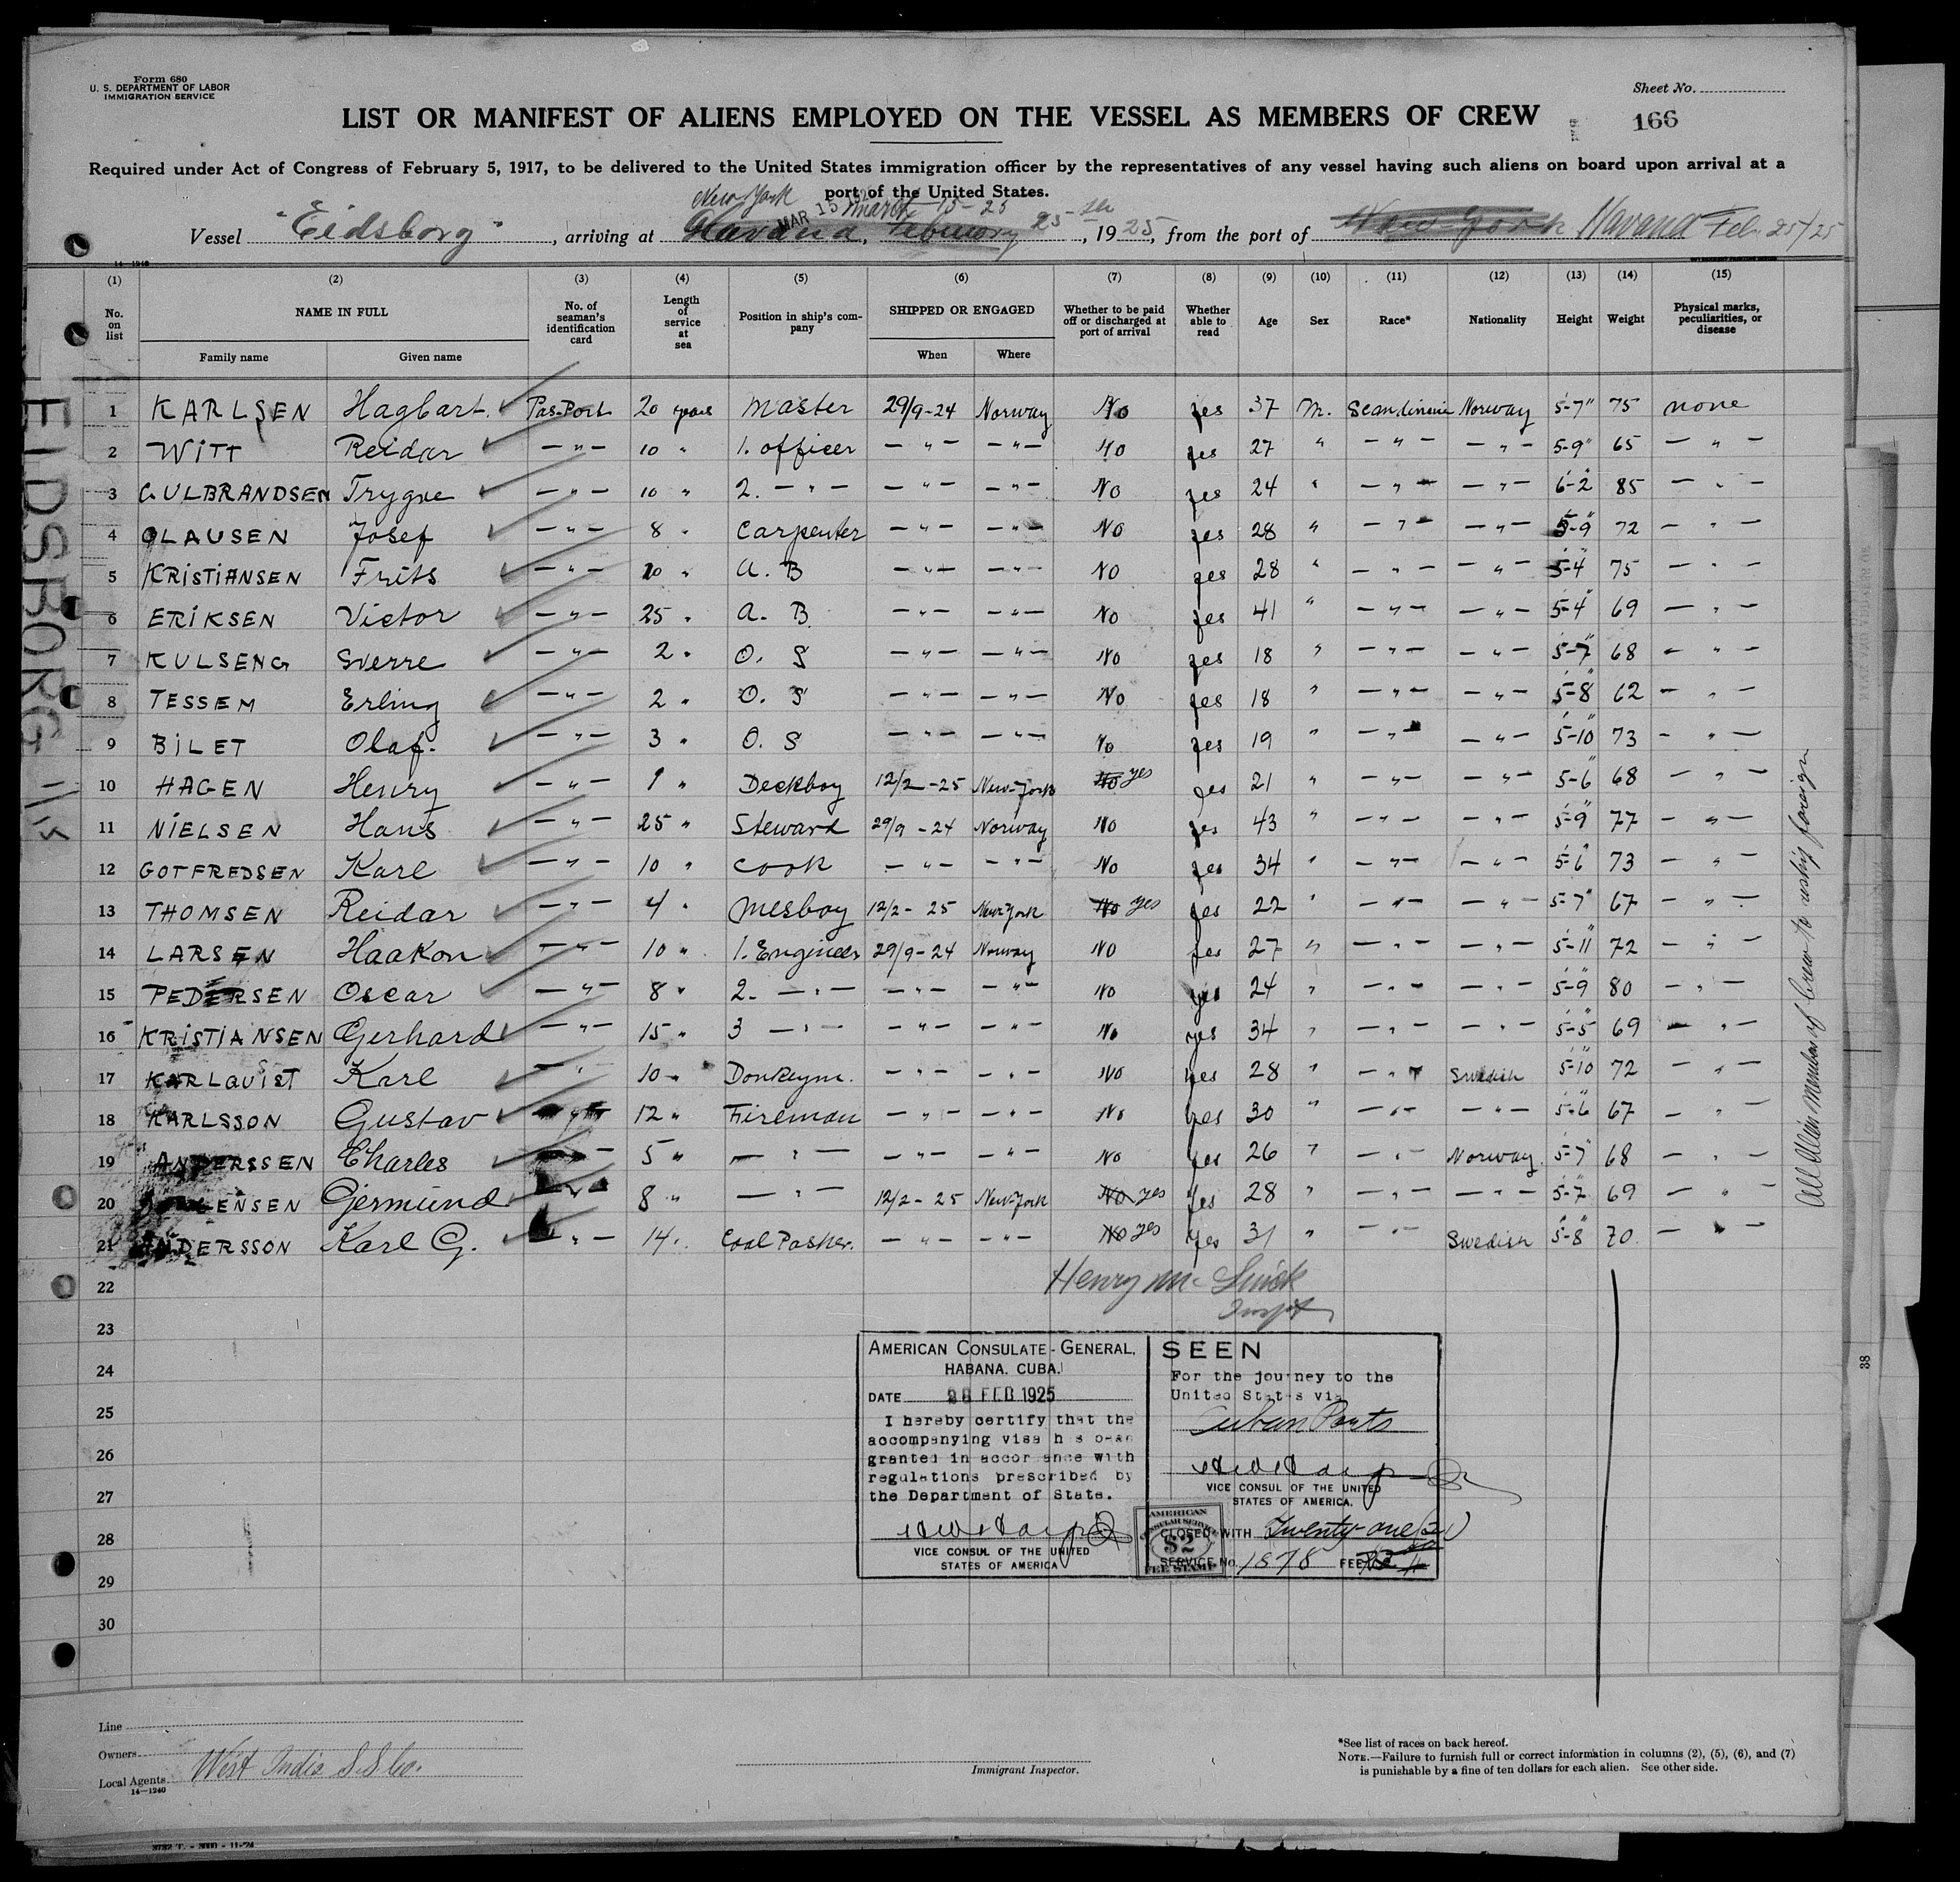 Form 680
U. S. DEPARTMENT OF LABOR
IMMIGRATION SERVICE
Sheet No.
166
LIST OR MANIFEST OF ALIENS EMPLOYED ON THE VESSEL AS MEMBERS OF CREW
Required under Act of Congress of February 5, 1917, to be delivered to the United States immigration officer by the representatives of any vessel having such aliens on board upon arrival at a
port of the United States.
New York March 15-25
MAR 15 192
Vessel "Eidsborg", arriving at Havana, February 25th, 1925, from the port of New York Havana Feb. 25/25
(1) (2) (3) (4) (5) (6) (7) (8) (9) (10) (11) (12) (13) (14) (15)
No. on list NAME IN FULL Family name Given name No. of seaman's identification card Length of service at sea Position in ship's company SHIPPED OR ENGAGED When Where Whether to be paid off or discharged at port of arrival Whether able to read Age Sex Race* Nationality Height Weight Physical marks, peculiarities, or disease
1 KARLSEN Hagbart. Pas-Port 20 years Master 29/9-24 Norway No yes 37 M. Scandinavie Norway 5-7" 75 none
2 WITT Reidar — " — 10 " 1. officer — " — — " — No yes 27 " — " — — " — 5-9" 65 — " —
3 GULBRANDSEN Trygve — " — 10 " 2. — " — — " — — " — No yes 24 " — " — — " — 6-2" 85 — " —
4 OLAUSEN Josef — " — 8 " Carpenter — " — — " — No yes 28 " — " — — " — 5-9" 72 — " —
5 KRISTIANSEN Frits — " — 20 " A. B — " — — " — No yes 28 " — " — — " — 5-4" 75 — " —
6 ERIKSEN Victor — " — 25 " A. B. — " — — " — No yes 41 " — " — — " — 5-4" 69 — " —
7 KULSENG Sverre — " — 2 " O. S — " — — " — No yes 18 " — " — — " — 5-7" 68 — " —
8 TESSEM Erling — " — 2 " O. S — " — — " — No yes 18 " — " — — " — 5-8" 62 — " —
9 BILET Olaf. — " — 3 " O. S — " — — " — No yes 19 " — " — — " — 5-10" 73 — " —
10 HAGEN Henry — " — 1 " Deckboy 12/2-25 New-York No yes yes 21 " — " — — " — 5-6" 68 — " —
11 NIELSEN Hans — " — 25 " Steward 29/9-24 Norway No yes 43 " — " — — " — 5-9" 77 — " —
12 GOTFREDSEN Karl — " — 10 " cook — " — — " — No yes 34 " — " — — " — 5-6" 73 — " —
13 THOMSEN Reidar — " — 4 " Mesboy 12/2-25 New-York No yes yes 22 " — " — — " — 5-7" 67 — " —
14 LARSEN Haakon — " — 10 " 1. Engineer 29/9-24 Norway No yes 27 " — " — — " — 5-11" 72 — " —
15 PEDERSEN Oscar — " — 8 " 2. — " — — " — — " — No yes 24 " — " — — " — 5-9" 80 — " —
16 KRISTIANSEN Gerhard — " — 15 " 3 — " — — " — — " — No yes 34 " — " — — " — 5-5" 69 — " —
17 KARLQUIST Karl — " — 10 " Donkeym. — " — — " — No yes 28 " — " — Swedish 5-10" 72 — " —
18 KARLSSON Gustav — " — 12 " Fireman — " — — " — No yes 30 " — " — — " — 5-6" 67 — " —
19 ANDERSSEN Charles — " — 5 " — " — — " — — " — No yes 26 " — " — Norway. 5-7" 68 — " —
20 ENSEN Germund — " — 8 " — " — 12/2-25 New-York No yes yes 28 " — " — — " — 5-7" 69 — " —
21 ANDERSSON Karl G. — " — 14 " Coal Passer. — " — — " — No yes yes 31 " — " — Swedish 5-8" 70 — " —
22
Henry Mc
Inspt
23
24
25
26
27
28
29
30
AMERICAN CONSULATE-GENERAL,
HABANA, CUBA.
DATE 26 FEB 1925
I hereby certify that the
accompanying visa h s b-en
granted in accor ance with
regulations prescribed by
the Department of State.
VICE CONSUL OF THE UNITED
STATES OF AMERICA
SEEN
For the journey to the
United States via
Cuban Ports
VICE CONSUL OF THE UNITED
STATES OF AMERICA.
CLOSED WITH Twenty-one (21)
SERVICE No. 1878 FEE
AMERICAN
CONSULAR SERVICE
$2
FEE STAMP
EIDSBORG
All Alien Members of Crew to reship foreign
Line
Owners
Local Agents West India S.S. Co.
14—1240
Immigrant Inspector.
*See list of races on back hereof.
NOTE.—Failure to furnish full or correct information in columns (2), (5), (6), and (7)
is punishable by a fine of ten dollars for each alien. See other side.
38